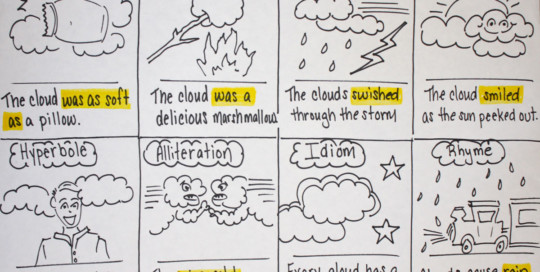 The cloud was as soft
as a pillow.
The cloud was a
delicious marshmallow
The clouds swished
through the storm
The cloud smiled
as the sun peeked out.
Hyperbole
Alliteration
Idiom
Rhyme
Every cloud has a